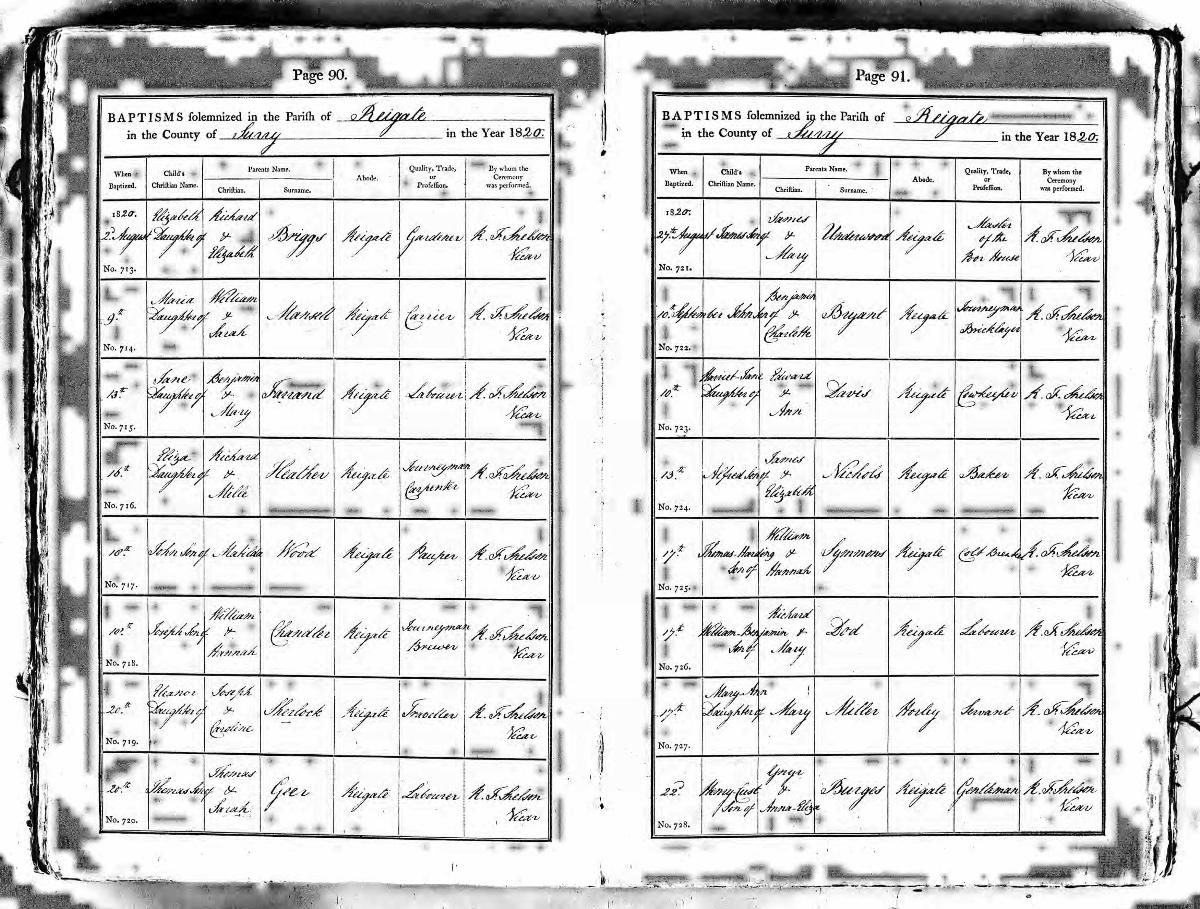 Page 90.
BAPTISMS solemnized in the Parish of Reigate
in the County of Surry in the Year 1820.
When Baptized. Child's Christian Name. Parents Name. Christian. Surname. Abode. Quality, Trade, or Profession. By whom the Ceremony was performed.
1820. Elizabeth Richard
2d August Daughter of & Briggs Reigate Gardener R. F. Snelson
Elizabeth Vicar
No. 713.
Maria William
9th Daughter of & Mansell Reigate Carrier R. F. Snelson
Sarah Vicar
No. 714.
Jane Benjamin
13th Daughter of & Farrand Reigate Labourer R. F. Snelson
Mary Vicar
No. 715.
Eliza Richard Journeyman
16th Daughter of & Heather Reigate Carpenter R. F. Snelson
Mille Vicar
No. 716.
John Son of Matilda Wood Reigate Pauper R. F. Snelson
Vicar
No. 717.
William Journeyman
Joseph Son of & Chandler Reigate Brewer R. F. Snelson
Hannah Vicar
No. 718.
Eleanor Joseph
20th Daughter of & Sherlock Reigate Traveller R. F. Snelson
Caroline Vicar
No. 719.
Thomas
20th Thomas Son of & Geer Reigate Labourer R. F. Snelson
Sarah Vicar
No. 720.
Page 91.
BAPTISMS solemnized in the Parish of Reigate
in the County of Surry in the Year 1820.
When Baptized. Child's Christian Name. Parents Name. Christian. Surname. Abode. Quality, Trade, or Profession. By whom the Ceremony was performed.
1820. James Master
27th August James Son of & Underwood Reigate of the R. F. Snelson
Mary House Vicar
No. 721.
Benjamin Journeyman
10th September John Son of & Bryant Reigate Bricklayer R. F. Snelson
Charlotte Vicar
No. 722.
Harriet Jane Edward
10th Daughter of & Davis Reigate Cowkeeper R. F. Snelson
Ann Vicar
No. 723.
James
13th Alfred Son of & Nichols Reigate Baker R. F. Snelson
Elizabeth Vicar
No. 724.
William
17th Thomas Harding & Symmons Reigate Colt Breaker R. F. Snelson
Son of Hannah Vicar
No. 725.
Richard
17th William Benjamin & Dod Reigate Labourer R. F. Snelson
Son of Mary Vicar
No. 726.
Mary Ann
17th Daughter of Mary Miller Horley Servant R. F. Snelson
Vicar
No. 727.
22d Henry Cust & Burges Reigate Gentleman R. F. Snelson
Son of Anna-Eliza Vicar
No. 728.